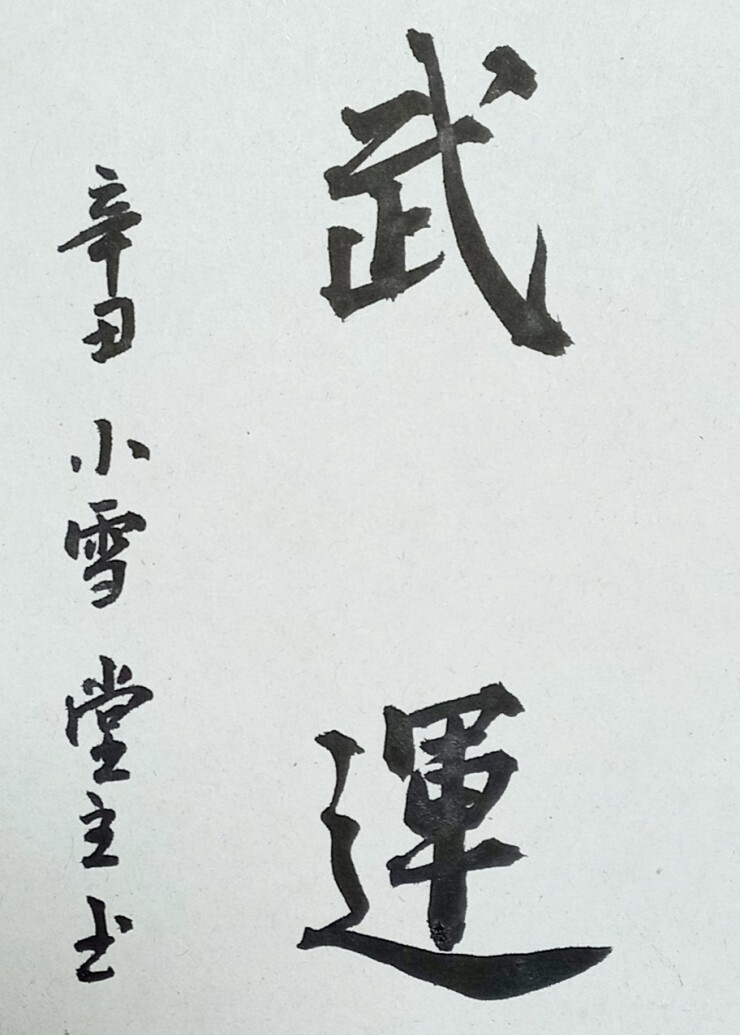 武運
辛丑 小雪 堂主书